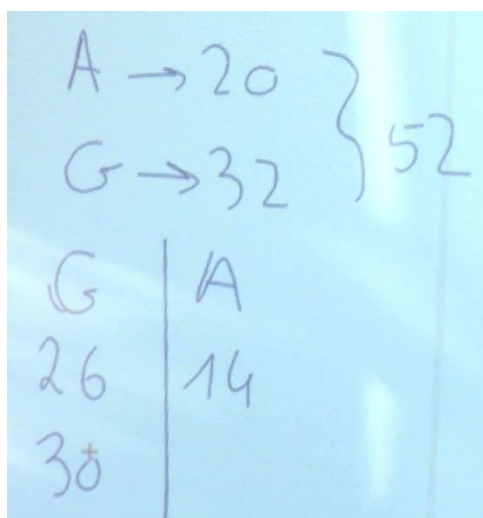 A → 20
G → 32
} 52
G | A
26 | 14
30 |